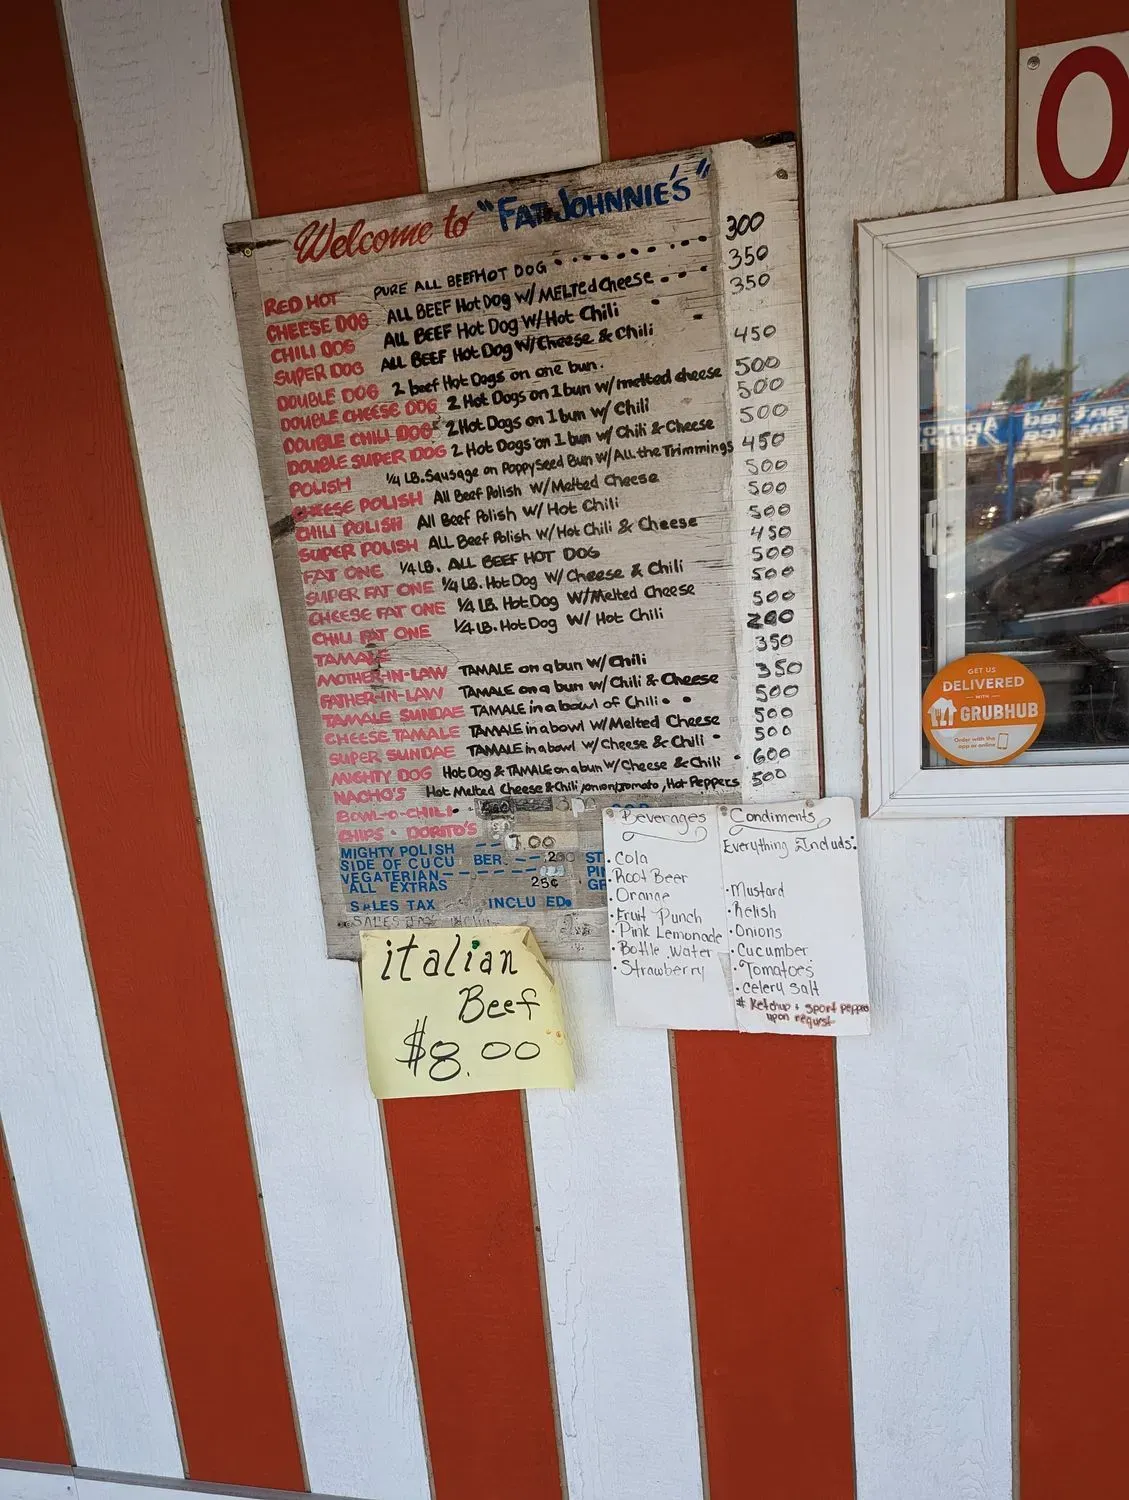 Welcome to "FAT JOHNNIE'S"
RED HOT PURE ALL BEEF HOT DOG 300
CHEESE DOG ALL BEEF Hot Dog w/ MELTED Cheese 350
CHILI DOG ALL BEEF Hot Dog W/ Hot Chili 350
SUPER DOG ALL BEEF Hot Dog W/Cheese & Chili
DOUBLE DOG 2 beef Hot Dogs on one bun. 450
DOUBLE CHEESE DOG 2 Hot Dogs on 1 bun w/ melted cheese 500
DOUBLE CHILI DOG 2 Hot Dogs on 1 bun w/ Chili 500
DOUBLE SUPER DOG 2 Hot Dogs on 1 bun w/ Chili & Cheese 500
POLISH 1/4 LB. Sausage on Poppy Seed Bun w/ All the Trimmings 450
CHEESE POLISH All Beef Polish W/ Melted Cheese 500
CHILI POLISH All Beef Polish w/ Hot Chili 500
SUPER POLISH ALL Beef Polish w/ Hot Chili & Cheese 500
FAT ONE 1/4 LB. ALL BEEF HOT DOG 450
SUPER FAT ONE 1/4 LB. Hot Dog W/ Cheese & Chili 500
CHEESE FAT ONE 1/4 LB. Hot Dog W/ Melted Cheese 500
CHILI FAT ONE 1/4 LB. Hot Dog W/ Hot Chili 500
TAMALE 200
MOTHER-IN-LAW TAMALE on a bun w/ Chili 350
FATHER-IN-LAW TAMALE on a bun w/ Chili & Cheese 350
TAMALE SUNDAE TAMALE in a bowl of Chili 500
CHEESE TAMALE TAMALE in a bowl w/ Melted Cheese 500
SUPER SUNDAE TAMALE in a bowl w/ Cheese & Chili 500
MIGHTY DOG Hot Dog & TAMALE on a bun w/ Cheese & Chili 600
NACHO'S Hot Melted Cheese & Chili, onion, tomato, Hot Peppers 500
BOWL-O-CHILI
CHIPS • DORITO'S
MIGHTY POLISH 7.00
SIDE OF CUCU BER. 200
VEGATERIAN
ALL EXTRAS 25¢
SALES TAX INCLU ED.
italian
Beef
$8.00
Beverages
• Cola
• Root Beer
• Orange
• Fruit Punch
• Pink Lemonade
• Bottle Water
• Strawberry
Condiments
Everything Includs:
• Mustard
• Relish
• Onions
• Cucumber
• Tomatoes
• Celery Salt
* Ketchup + sport peppers
upon request
O
GET US
DELIVERED
WITH
GRUBHUB
Order with the
app or online